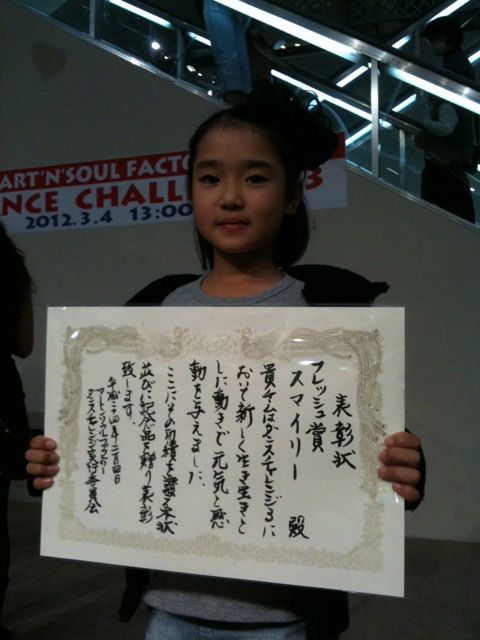 ART'N'SOUL FACTO
NCE CHALL 3
2012.3.4 13:00
表彰状
フレッシュ賞
スマイリー 殿
貴チームはダンスチャレンジ3に
おいて新しく生き生きと
した動きで元気と感
動を与えました
ここにその功績を讃え本状
並びに記念品を贈り表彰
致します。
平成二十四年三月四日
アートンソウルファクトリー
ダンスチャレンジ実行委員会